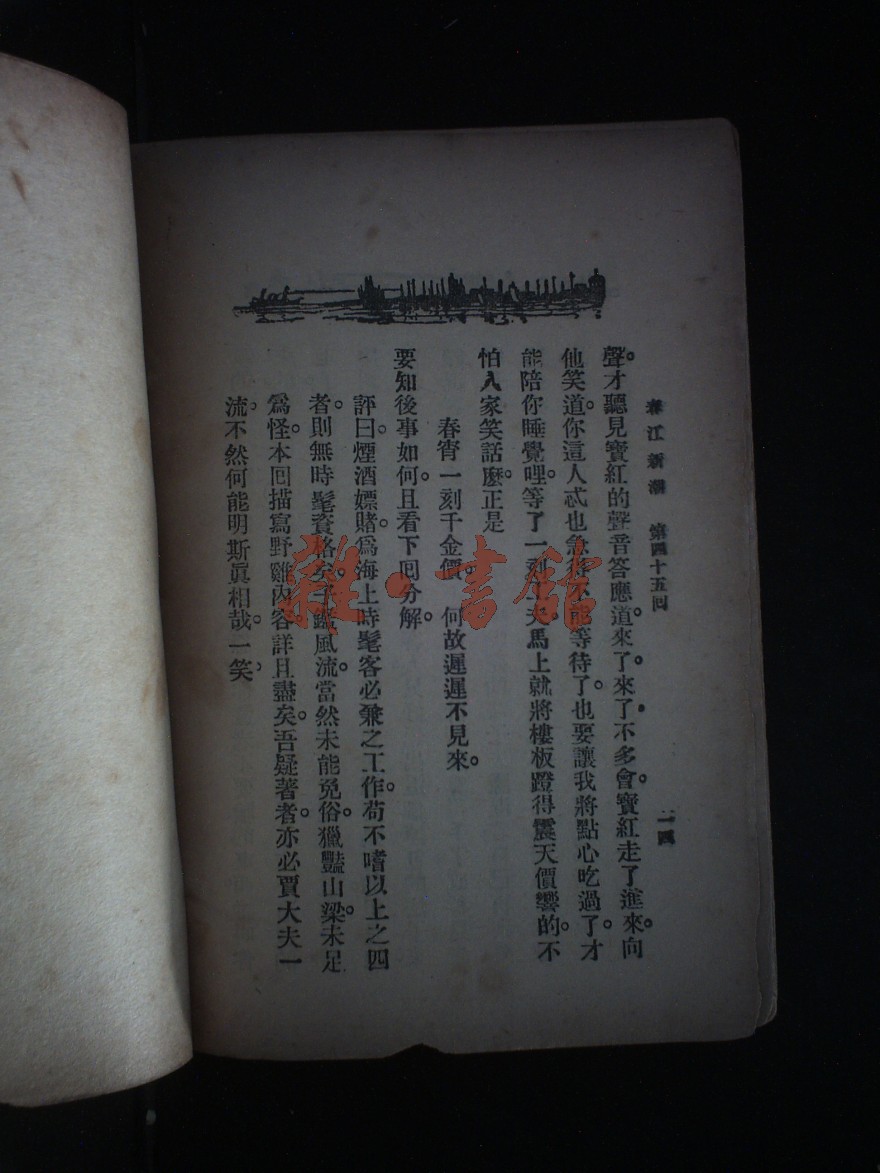 春江新潮　第四十五回　二四
聲。才聽見寶紅的聲音答應道。來了。來了。不多會。寶紅走了進來。向
他笑道。你這人忒也急得不能等待了。也要讓我將點心吃過了。才
能陪你睡覺哩。等了一刻工夫。馬上就將樓板蹬得震天價響的。不
怕人家笑話麼。正是
春宵一刻千金價。何故遲遲不見來。
要知後事如何。且看下回分解。
評曰煙酒嫖賭。爲海上時髦客必兼之工作。苟不嗜以上之四
者。則無時髦資格矣。子鑑風流。當然未能免俗。獵豔山梁。未足
爲怪。本回描寫野雞內容。詳且盡矣。吾疑著者。亦必賈大夫一
流。不然何能明斯眞相哉。一笑。
雜·書館